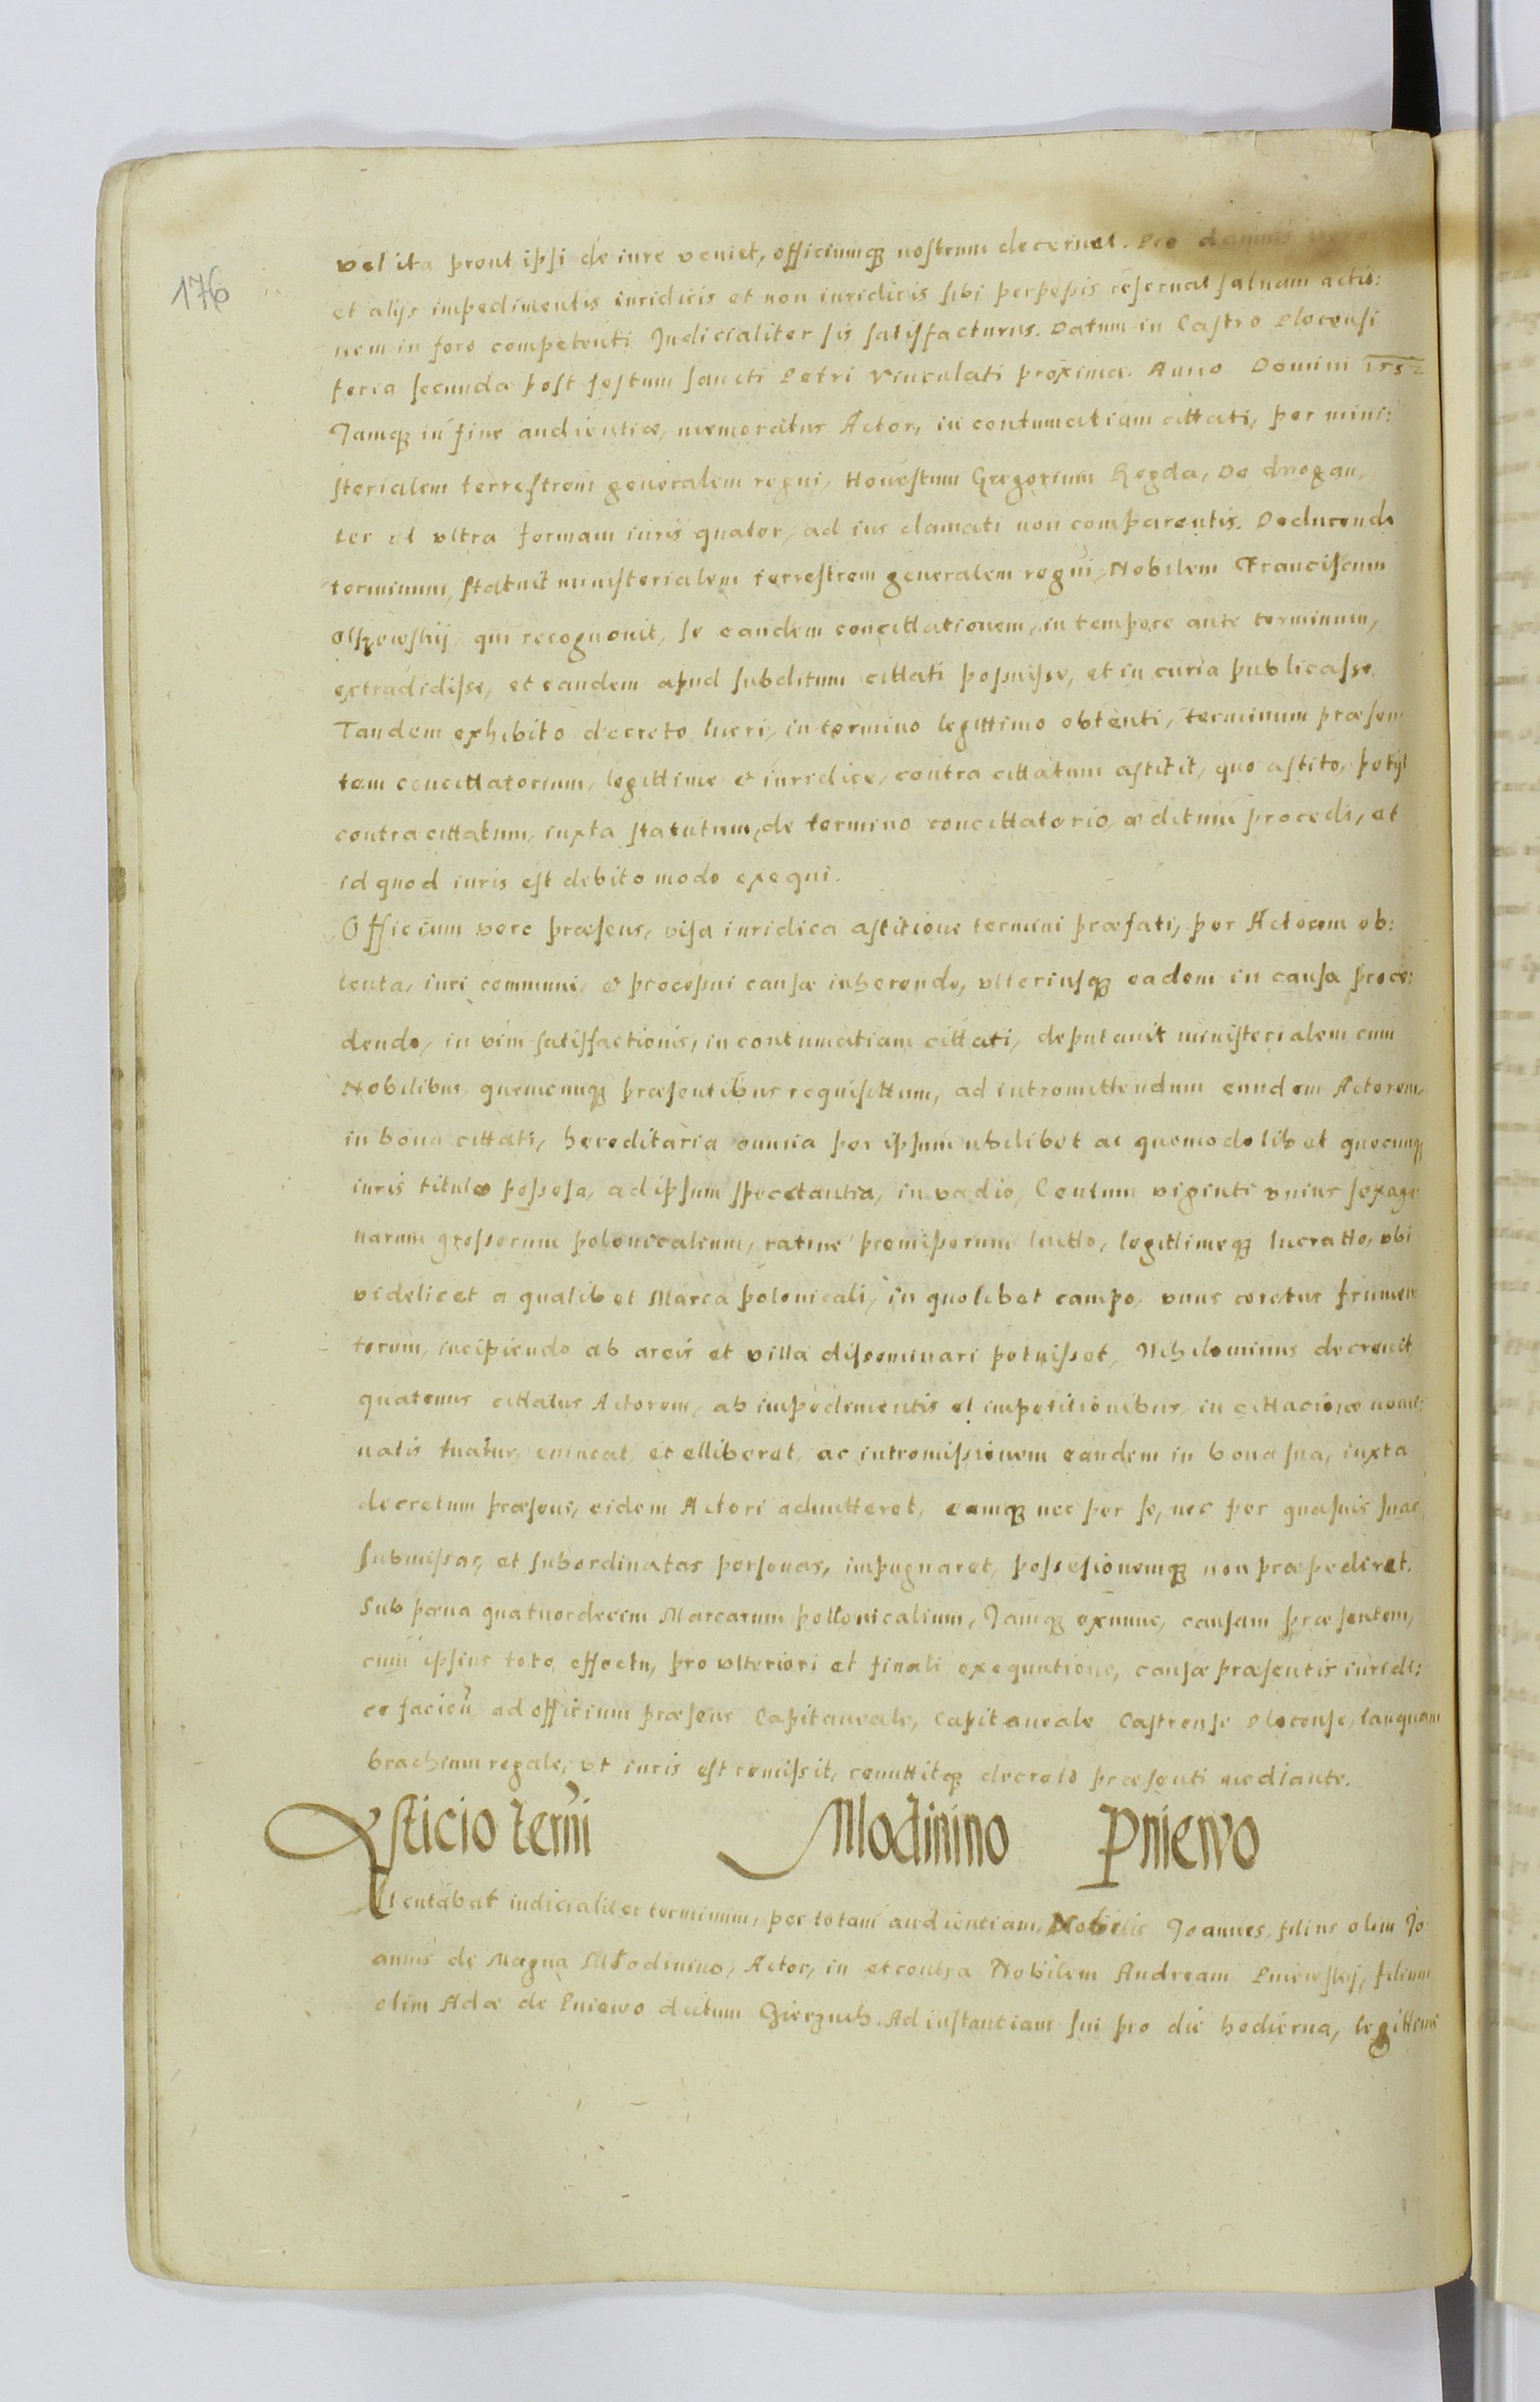 176
vel ita prout ipsi de iure veniet, officiumq nostrum decernet. Pro damnis vero
et alijs impedimentis iuridicis et non iuridicis sibi perpessis reservat salvam actio:
nem in foro competenti Judicialiter sis satisfacturus. Datum in Castro Plocensi
feria secunda post festum sancti Petri Vinculati proxima. Anno Domini
Jamq in fine audientiæ, memoratus Actor, in contumatiam cittati, per mini:
sterialem terrestrem generalem regni, Honestum Gregorium Rogda, de drogan
ter et ultra formam iuris quater, ad ius clamati non comparentis. Deducendo
terminum, statuit ministerialem terrestrem generalem regni, Nobilem Franciscum
Olszewskij, qui recognovit, se eandem concittationem, in tempore ante terminum,
extradidisse, et eandem apud subditum cittati posuisse, et in curia publicasse.
Tandem exhibito decreto lucri, in termino legittimo obtenti, terminum præsen
tem concittatorium, legittime et iuridice, contra cittatum astitit, quo astito, petijt
contra cittatum, iuxta statutum, de termino concittatorio æditum procedi, et
id quod iuris est debito modo exequi.
Officium vero præsens, visa iuridica astitione termini præfati, per Actorem ob:
tenta, iuri communi, et processui causæ inherendo, ulteriusq eadem in causa proce:
dendo, in vim satisfactionis, in contumatiam cittati, deputavit ministerialem cum
Nobilibus quemcunq præsentibus requisittum, ad intromittendum eundem Actorem,
in bona cittati, hereditaria omnia per ipsum ubilibet ac quomodolibet quocunq
iuris titulo possesa, ad ipsum spectantia, in vadio, Centum viginti unius sexage
narum grossorum polonicalium, ratione premissorum luitto, legittimeq lucratto, ubi
videlicet a qualibet Marca polonicali, in quolibet campo, unus coretus frumen
torum, incipiendo ab areis et villa diseminari potuisset, Nihilominus decrevit
quatenus cittatus Actorem, ab impedimentis et impetitionibus, in cittacione nomi:
natis tuatur, evincat, et elliberet, ac intromissionem eandem in bona sua, iuxta
decretum præsens, eidem Actori admitteret, eamq nec per se, nec per quasvis suas
submissas, et subordinatas personas, impugnaret, possesionemq non præpediret.
Sub pæna quatuordecim Marcarum pollonicalium, Jamq exnunc, causam præsentem,
cum ipsius toto effectu, pro ulteriori et finali exequutione, causæ præsentis iuridi:
ce facien ad officium præsens Capitaneale, Capitaneale Castrense Plocense, tanquam
brachium regale, ut iuris est remissit, remittitq decreto præsenti mediante.
Asticio termi Mlodinino Pniewo
Attentabat iudicialiter terminum, per totam audientiam, Nobilis Joannes filius olim Jo
annis de Magna Mlodinino, Actor, in et contra Nobilem Andream Pniewskj, filium
olim Adæ de Pniewo dictum Gierzuch. Ad instantiam sui pro die hodierna, legittime